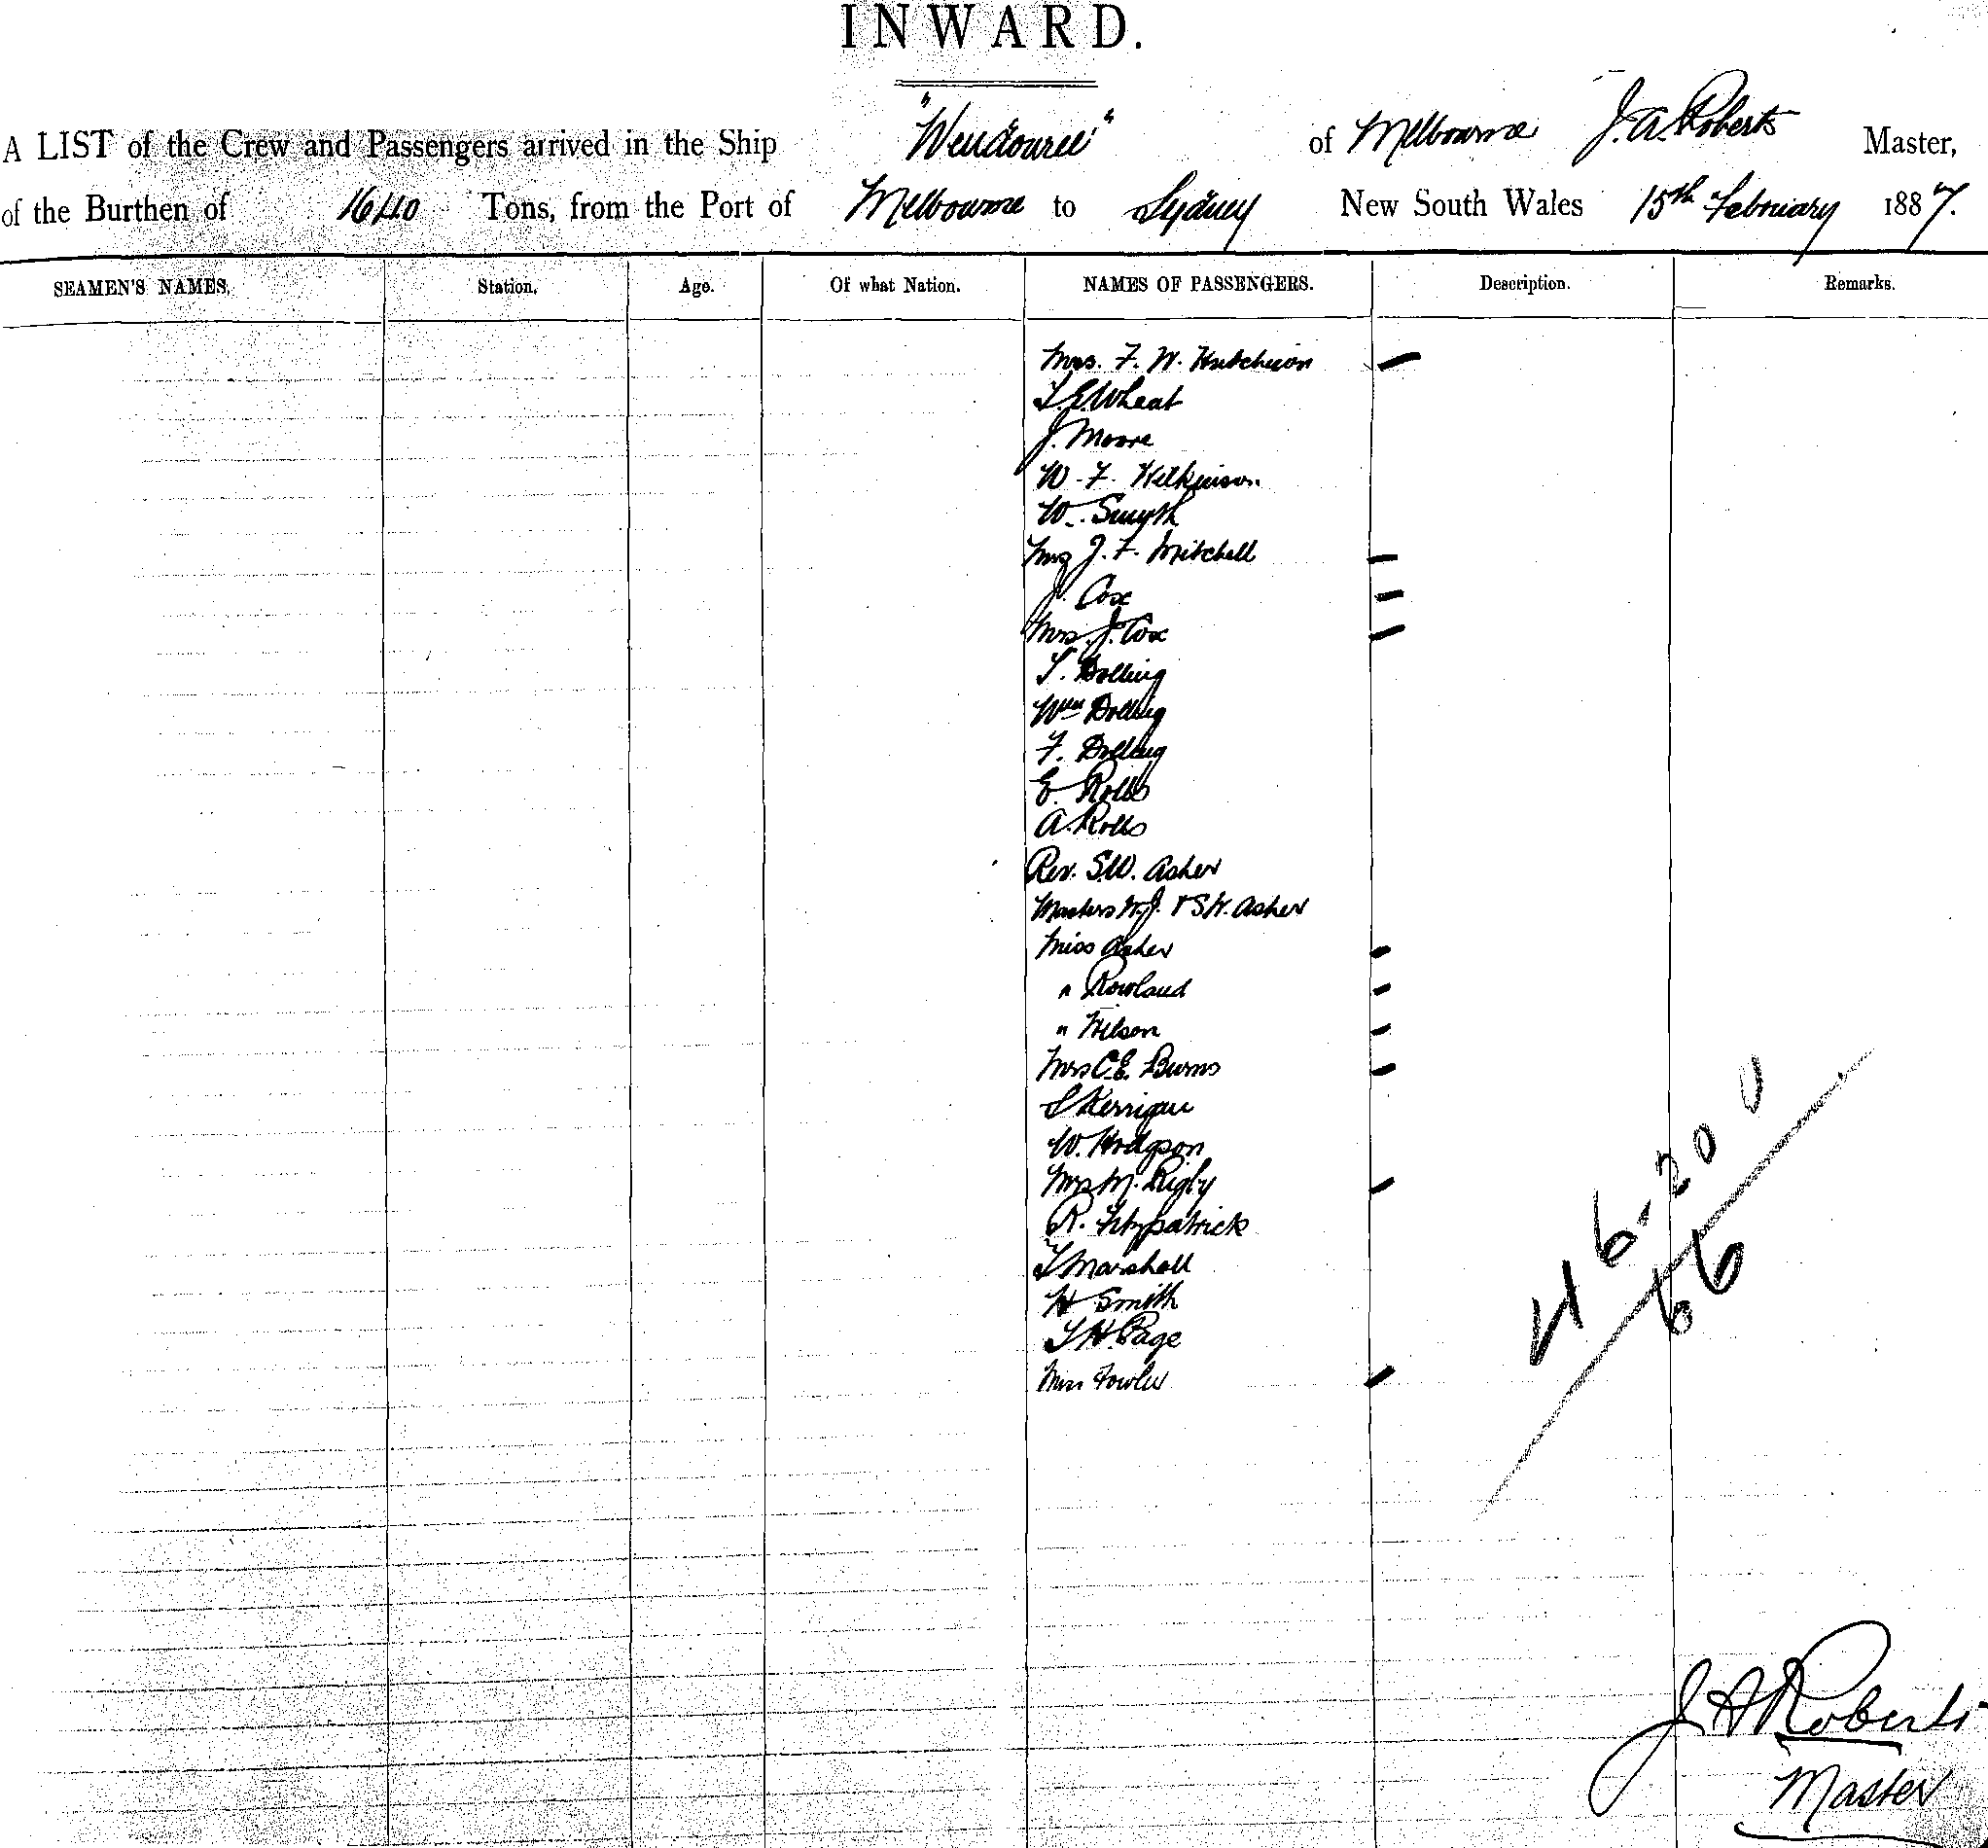 INWARD.
A LIST of the Crew and Passengers arrived in the Ship "Wendouree" of Melbourne J. A. Roberts Master,
of the Burthen of 1640 Tons, from the Port of Melbourne to Sydney New South Wales 15th February 1887.
SEAMEN'S NAMES. Station. Age. Of what Nation. NAMES OF PASSENGERS. Description. Remarks.
Mrs. F. W. Hutchison
T. E. Wheat
J. Moore
W. F. Wilkinson
W. Smyth
Mrs J. F. Mitchell
J. Cox
Mrs. J. Cox
T. Dolling
Wm Dolling
F. Dolling
E. Rolls
A. Rolls
Rev. S.W. Asher
Masters W.J. & S.W. Asher
Miss Asher
" Rowland
" Wilson
Mrs C.E. Burns
Kerrigan
W. Hodgson
Mrs M. Rigby
R. Fitzpatrick
T Marshall
H Smith
T H. Page
Miss Fowler
46-20
66
J A Roberts
Master